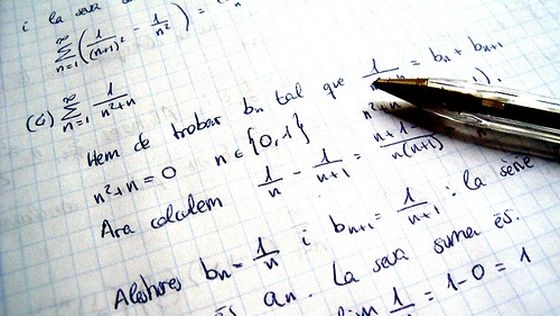 i la seva
∑_{n=1}^{∞} (1/(n+1)² - 1/n²) =
(c) ∑_{n=1}^{∞} 1/(n²+n)
Hem de trobar bn tal que 1/ = bn + bn+1
n²+n = 0 n ∈ {0,1}
Ara calculem 1/n - 1/(n+1) = n+1-/n(n+1)
Aleshores bn = 1/n i bn+1 = 1/(n+1) : la sèrie
és an. La seva suma és.
lim 1/ = 1-0 = 1